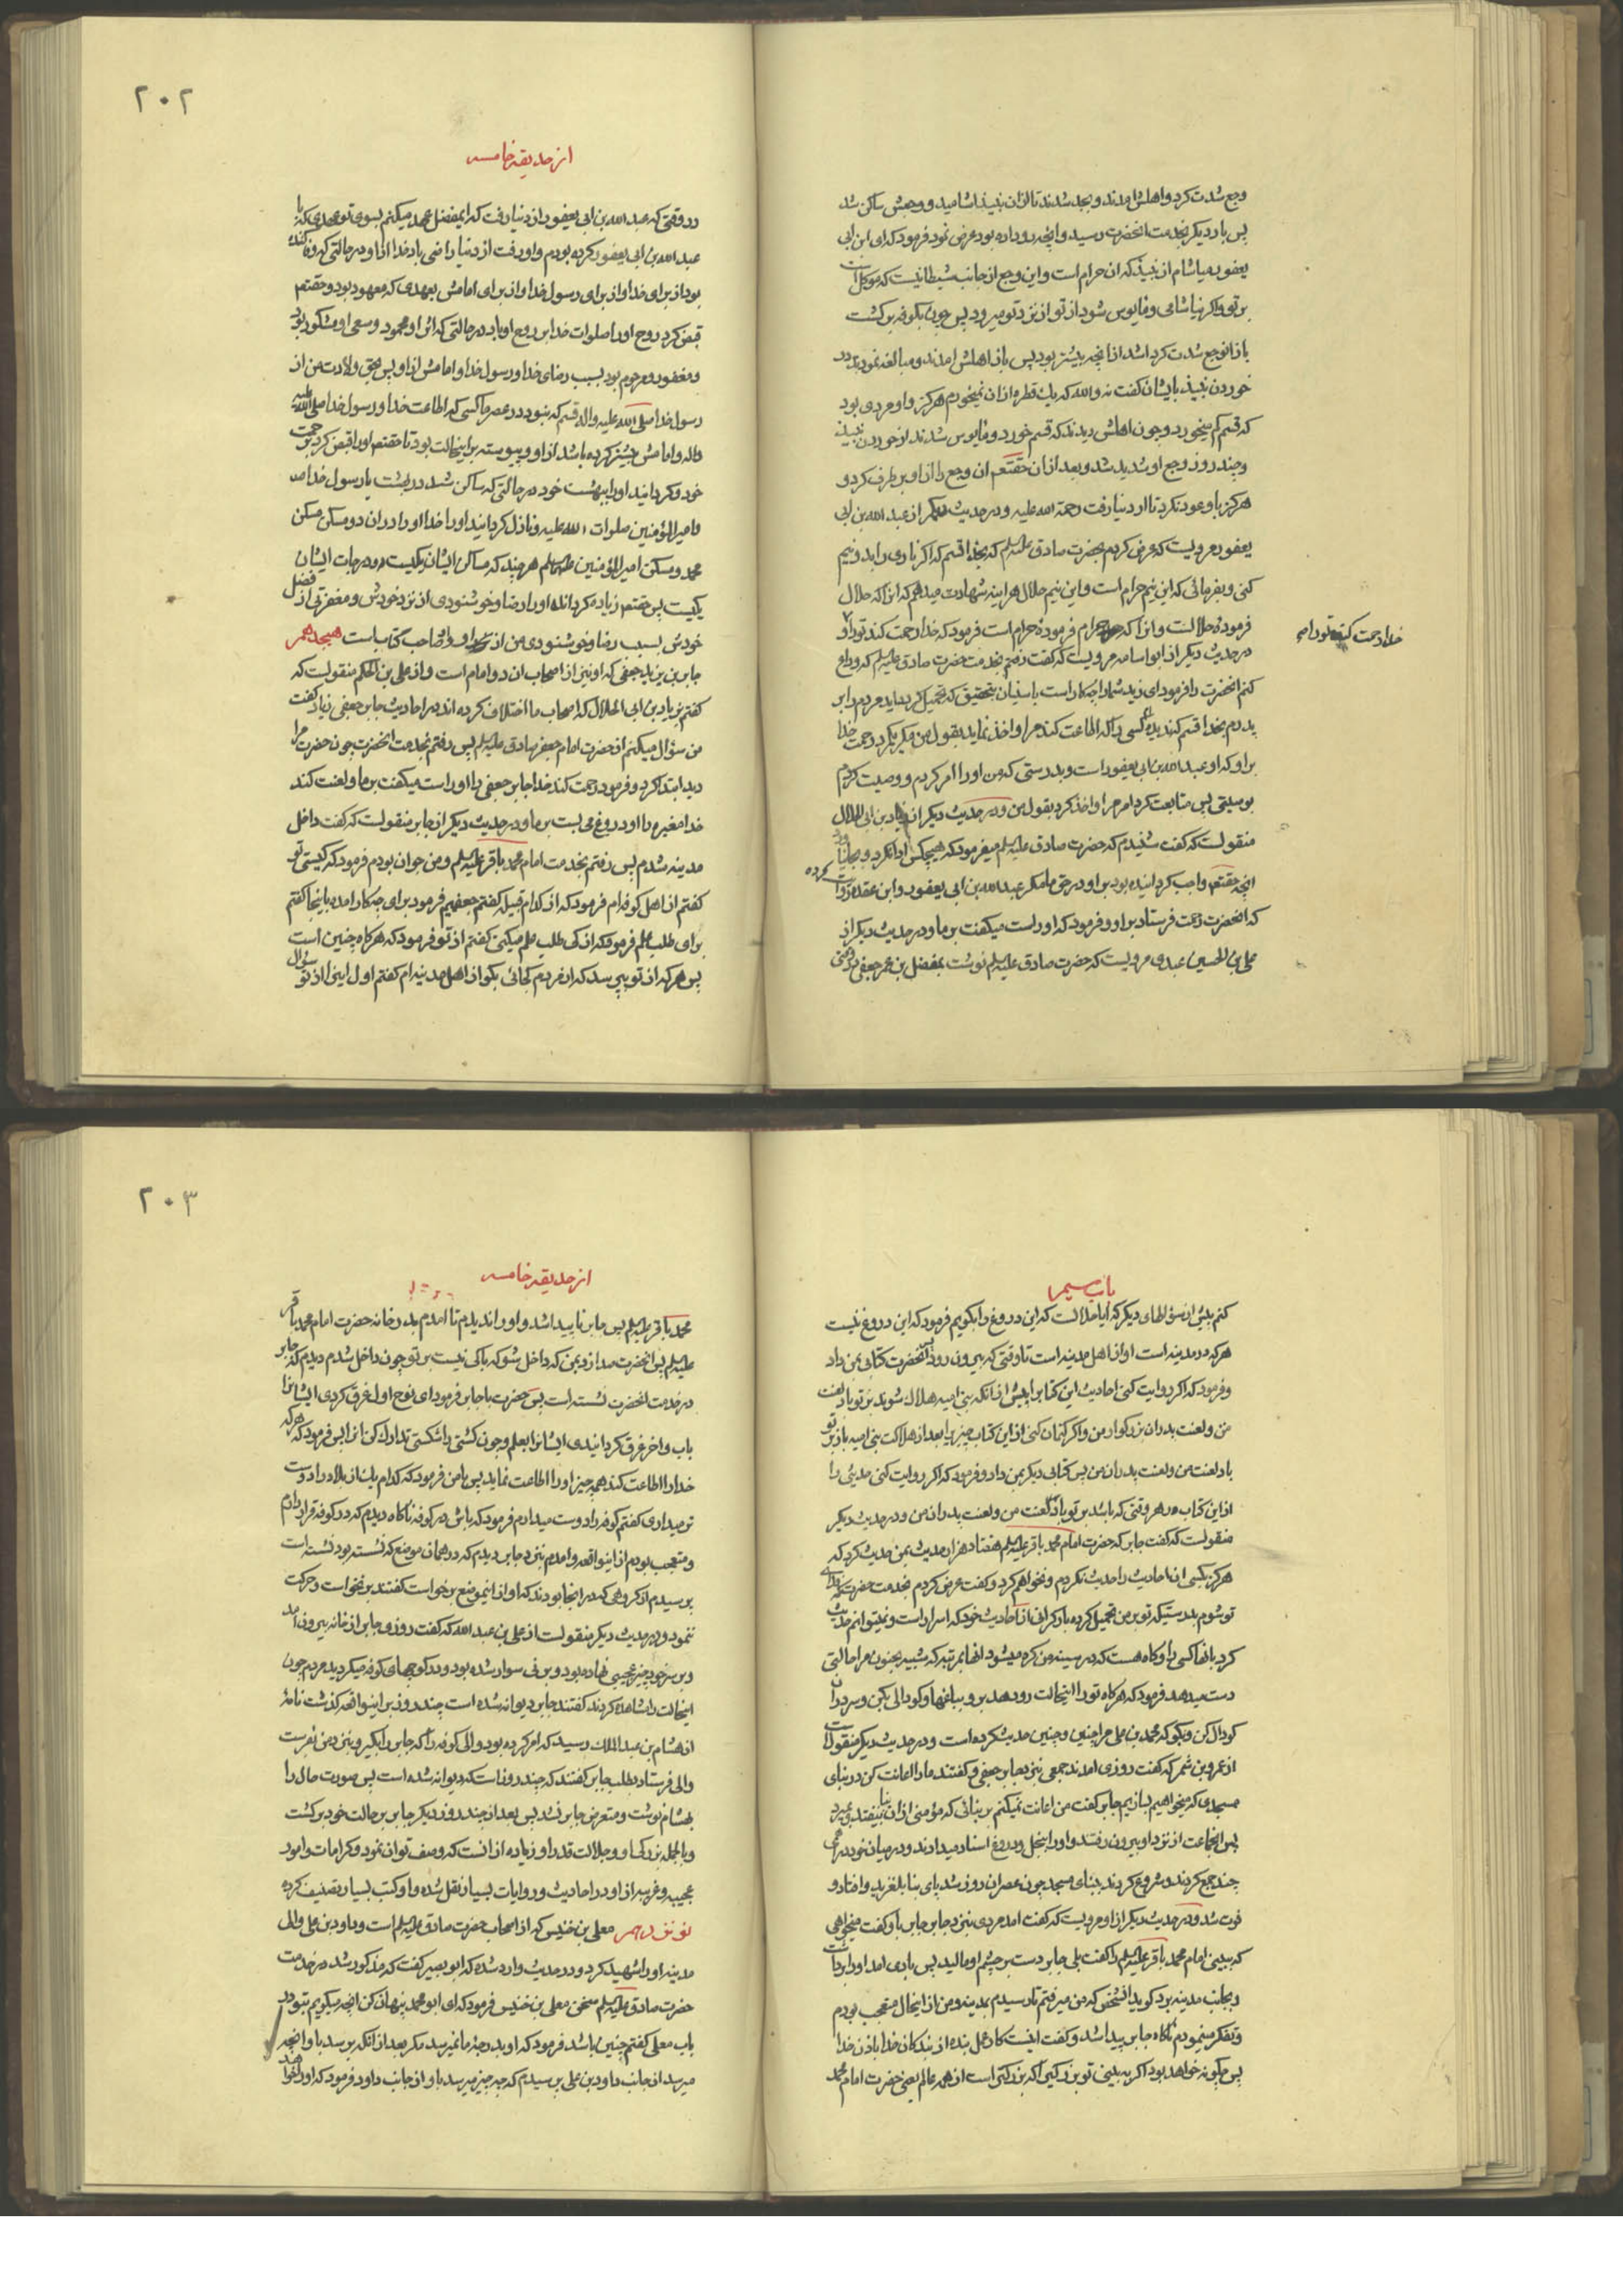 وجع شدت کرد و اهلش آمدند و بجد شدند تا از ان نبیذ اشامید و وجعش ساکن شد
پس بار دیگر بخدمت انحضرت رسید و انچه رو داده بود عرض نمود فرمود که ای ابن ابی
یعفور میاشام از نبیذ که ان حرام است و این وجع از جانب شیطانیست که موکل است
بر تو و اکر نیاشامی و مایوس شود از تو از نزد تو میرود پس چون بکوفه برکشت
باز انوجع شدت کرد اشد از انچه بیشتر بود پس باز اهلش امدند و مبالغه نمودند در
خوردن نبیذ بایشان کفت نه والله که یک قطره از ان نمیخورم هرکز و او مردی بود
که قسم کم میخورد و چون اهلش دیدند که قسم خورد و مایوس شدند از خوردن نبیذ
و چند روز وجع او شدید شد و بعد از ان حقتعم ان وجع را از او بر طرف کرد و
هرکز باو عود نکرد تا از دنیا رفت رحمة الله علیه و در حدیث دیکر از عبد الله بن ابی
یعفور مرویست که عرض کردم بحضرت صادق علیه السلم که بخدا قسم که اکر ناری را بدو نیم
کنی و بفرمائی که این نیم حرام است و این نیم حلال هراینه شهادت میدهم که انرا که حلال
فرمودهٔ حلالست و انرا که حرام فرمودهٔ حرام است فرمود که خدا رحمت کند تو را و
خدا رحمت کند تو را م
در حدیث دیکر از ابو اسامه مرویست که کفت رفتم بخدمت حضرت صادق علیه السلم که وداع
کنم انحضرت را فرمود ای زید شما را چکار است با سنیان بتحقیق که تحمیل کرده اید مردم را بر
پدرم بخدا قسم که ندیدم کسی را که اطاعت کند مرا و اخذ نماید بقول من مکر یکمرد رحمت خدا
بر او که او عبد الله بن ابی یعفور است و بدرستی که من او را امر کردم و وصیت کردم
بوصیتی پس متابعت کرد امر مرا و اخذ کرد بقول من و در حدیث دیکر از زیاد بن ابی الحلال
منقولست که کفت شنیدم که حضرت صادق علیه السلم میفرمود که هیچکس ادا نکرد و بجا نیاورد
انچه حقتعم واجب کردانیده بود بر او در حق ما مکر عبد الله بن ابی یعفور و ابن عقده روایت کرده
که انحضرت رحمت فرستاد بر او و فرمود که او راست میکفت بر ما و در حدیث دیکر از
علی بن الحسین عبدی مرویست که حضرت صادق علیه السلم نوشت بمفضل بن عمر جعفی
٢٠٢
از حدیقه خامسه
در وقتی که عبد الله بن ابی یعفور از دنیا رفت که ای مفضل عهد میکنم بسوی تو عهدی که با
عبد الله بن ابی یعفور کرده بودم و او رفت از دنیا راضی باد خدا از او در حالتی که وفا کننده
بود از برای خدا و از برای رسول خدا و از برای امامش بعهدی که معهود بود و حقتعم
قبض کرد روح او را صلوات خدا بر روح او باد در حالتی که اثر او محمود و سعی او مشکور بود
و مغفور و مرحوم بود بسبب رضای خدا و رسول خدا و امامش از او پس بحق ولادت من از
رسول خدا صلی الله علیه واله قسم که نبود در عصر ما کسی که اطاعت خدا و رسول خدا صلی الله علیه
واله و امامش بیشتر کرده باشد از او و پیوسته بر اینحالت بود تا حقتعم او را قبض کرد برحمت
خود و کردانید او را ببهشت خود در حالتی که ساکن شد در بهشت با رسول خدا صم
و امیر المؤمنین صلوات الله علیه و نازل کردانید او را خدا در ان دو مسکن مسکن
محمد و مسکن امیر المؤمنین علیهما السلم هر چند که مساکن ایشان یکیست و درجات ایشان
یکیست پس حقتعم زیاده کرداند او را رضا و خوشنودی از نزد خودش و مغفرتی از فضل
خودش بسبب رضا و خوشنودی من از او و او صاحب کتابست هیجدهم
جابر بن یزید جعفی که او نیز از اصحاب ان دو امام است و از علی بن الحکم منقولست که
کفتم بزیاد بن ابی الحلال که اصحاب ما اختلاف کرده اند در احادیث جابر جعفی زیاد کفت
من سؤال میکنم از حضرت امام جعفر صادق علیه السلم پس رفتم بخدمت انحضرت چون حضرت مرا
دید ابتدا کرد و فرمود رحمت کند خدا جابر جعفی را او راست میکفت بر ما و لعنت کند
خدا مغیره را او دروغ می بست بر ما و در حدیث دیکر از جابر منقولست که کفت داخل
مدینه شدم پس رفتم بخدمت امام محمد باقر علیه السلم و من جوان بودم فرمود که کیستی تو
کفتم از اهل کوفه ام فرمود که از کدام قبیله کفتم جعفیم فرمود برای چه کار امده باینجا کفتم
برای طلب علم فرمود که از کی طلب علم میکنی کفتم از تو فرمود که هرکاه چنین است
پس هر که از تو بپرسد که از مردم کجائی بکو از اهل مدینه ام کفتم اول اینرا از تو سؤال
باب سیم
کنم پیش از سؤالهای دیکر که ایا حلالست که این دروغ را بکویم فرمود که این دروغ نیست
هر که در مدینه است او از اهل مدینه است تا وقتی که بیرون رود پس انحضرت کتابی بمن داد
و فرمود که اکر روایت کنی احادیث این کتاب را پیش از انکه بنی امیه هلاک شوند بر تو باد لعنت
من و لعنت پدران بزرکوار من و اکر کتمان کنی از این کتاب چیزیرا بعد از هلاکت بنی امیه باز بر تو
باد لعنت من و لعنت پدران من پس کتابی دیکر بمن داد و فرمود که اکر روایت کنی حدیثی را
از این کتاب در هر وقتی که باشد بر تو باد لعنت من و لعنت پدران من و در حدیث دیکر
منقولست که کفت جابر که حضرت امام محمد باقر علیه السلم هفتاد هزار حدیث بمن حدیث کرد که
هرکز بکسی ان احادیث را حدیث نکردم و نخواهم کرد و کفت عرض کردم بخدمت حضرت که فدای
تو شوم بدرستیکه تو بر من تحمیل کرده بار کرانی از احادیث خود که اسرار است و نمیتوانم حدیث
کرد بانها کسی را و کاه هست که در سینه من کره میشود انها بمرتبه که شبیه بجنون مرا حالتی
دست میدهد فرمود که هرکاه تو را اینحالت رو دهد برو ببیابانها و کودالی بکن و سر در ان
کودال کن و بکو که محمد بن علی مرا چنین و چنین حدیث کرده است و در حدیث دیکر منقولست
از عمرو بن شمر که کفت روزی امدند جمعی بنزد جابر جعفی و کفتند ما را اعانت کن در بنای
مسجدی که میخواهیم بسازیم جابر کفت من اعانت نمیکنم بر بنائی که مؤمنی از ان بنا بیفتد و بمیرد
پس انجماعت از نزد او بیرون رفتند و او را ببخل و دروغ اسناد میدادند و در میان خود درهمی
چند جمع کردند و شروع کردند ببنای مسجد چون عصر ان روز شد پای بنا بلغزید و افتاد و
فوت شد و در حدیث دیکر از او مرویست که کفت امد مردی بنزد جابر جابر باو کفت میخواهی
که ببینی امام محمد باقر علیه السلم را کفت بلی جابر دست بر چشم او مالید پس بادی امد او را برداشت
و بجانب مدینه برد کوید انشخص که من میرفتم تا رسیدم بمدینه و من از اینحال متعجب بودم
و تفکر مینمودم ناکاه جابر پیدا شد و کفت اینست کار و عمل بنده از بندکان خدا باذن خدا
پس چکونه خواهد بود اکر به بینی تو بزرکی را که بزرکتر است از همه عالم یعنی حضرت امام محمد
٢٠٣
از حدیقه خامسه
محمد باقر علیه السلم پس جابر ناپیدا شد و او را ندیدم تا امدم بدر خانه حضرت امام محمد باقر
علیه السلم پس انحضرت صدا زد بمن که داخل شو که باکی نیست بر تو چون داخل شدم دیدم که جابر
در خدمت انحضرت نشسته است پس حضرت با جابر فرمود ای نوح اول غرق کردی ایشانرا
باب و اخر غرق کردانیدی ایشانرا بعلم و چون کشتی را شکستی تدارک کن انرا پس فرمود که هر که
خدا را اطاعت کند همه چیز او را اطاعت نماید پس با من فرمود که کدام یک از بلاد را دوست
تر میداری کفتم کوفه را دوست میدارم فرمود که باش در کوفه ناکاه دیدم که در کوفه قرار دارم
و متعجب بودم از اینواقعه و امدم بنزد جابر دیدم که در همان موضع که نشسته بود نشسته است
پرسیدم از کروهی که در انجا بودند که او از این موضع برخواست کفتند برنخواست و حرکت
ننمود و در حدیث دیکر منقولست از علی بن عبد الله که کفت روزی جابر از خانه بیرون امد
و بر سر خود چیز عجیبی نهاده بود و بر نی سوار شده بود و در کوچهای کوفه میکردید مردم چون
اینحالت را مشاهده کردند کفتند جابر دیوانه شده است چند روز بر اینواقعه کذشت نامهٔ
از هشام بن عبد الملک رسید که امر کرده بود والی کوفه را که جابر را بکیر و بنزد من بفرست
والی فرستاد بطلب جابر کفتند که چند روز است که دیوانه شده است پس صورت حال را
بهشام نوشت و متعرض جابر نشد پس بعد از چند روز دیکر جابر بر حالت خود برکشت
و بالجمله بزرکی او و جلالت قدر او زیاده از انست که وصف توان نمود و کرامات و امور
عجیب و غریبه از او در احادیث و روایات بسیار نقل شده و او کتب بسیار تصنیف کرده
نوزدهم معلی بن خنیس که از اصحاب حضرت صادق علیه السلم است و داود بن علی والی
مدینه او را شهید کرد و در حدیث وارد شده که ابو بصیر کفت که مذکور شد در خدمت
حضرت صادق علیه السلم سخن معلی بن خنیس فرمود که ای ابو محمد پنهان کن انچه میکویم بتو در
باب معلی کفتم چنین باشد فرمود که او بدرجهٔ ما نمیرسد مکر بعد از انکه برسد باو انچه
میرسد از جانب داود بن علی پرسیدم که چه چیز میرسد باو از جانب داود فرمود که او را خواهد